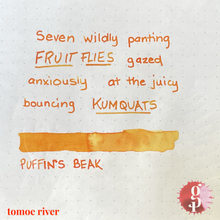 Seven wildly panting
FRUIT FLIES gazed
anxiously at the juicy
bouncing KUMQUATS
PUFFIN'S BEAK
tomoe river
gp